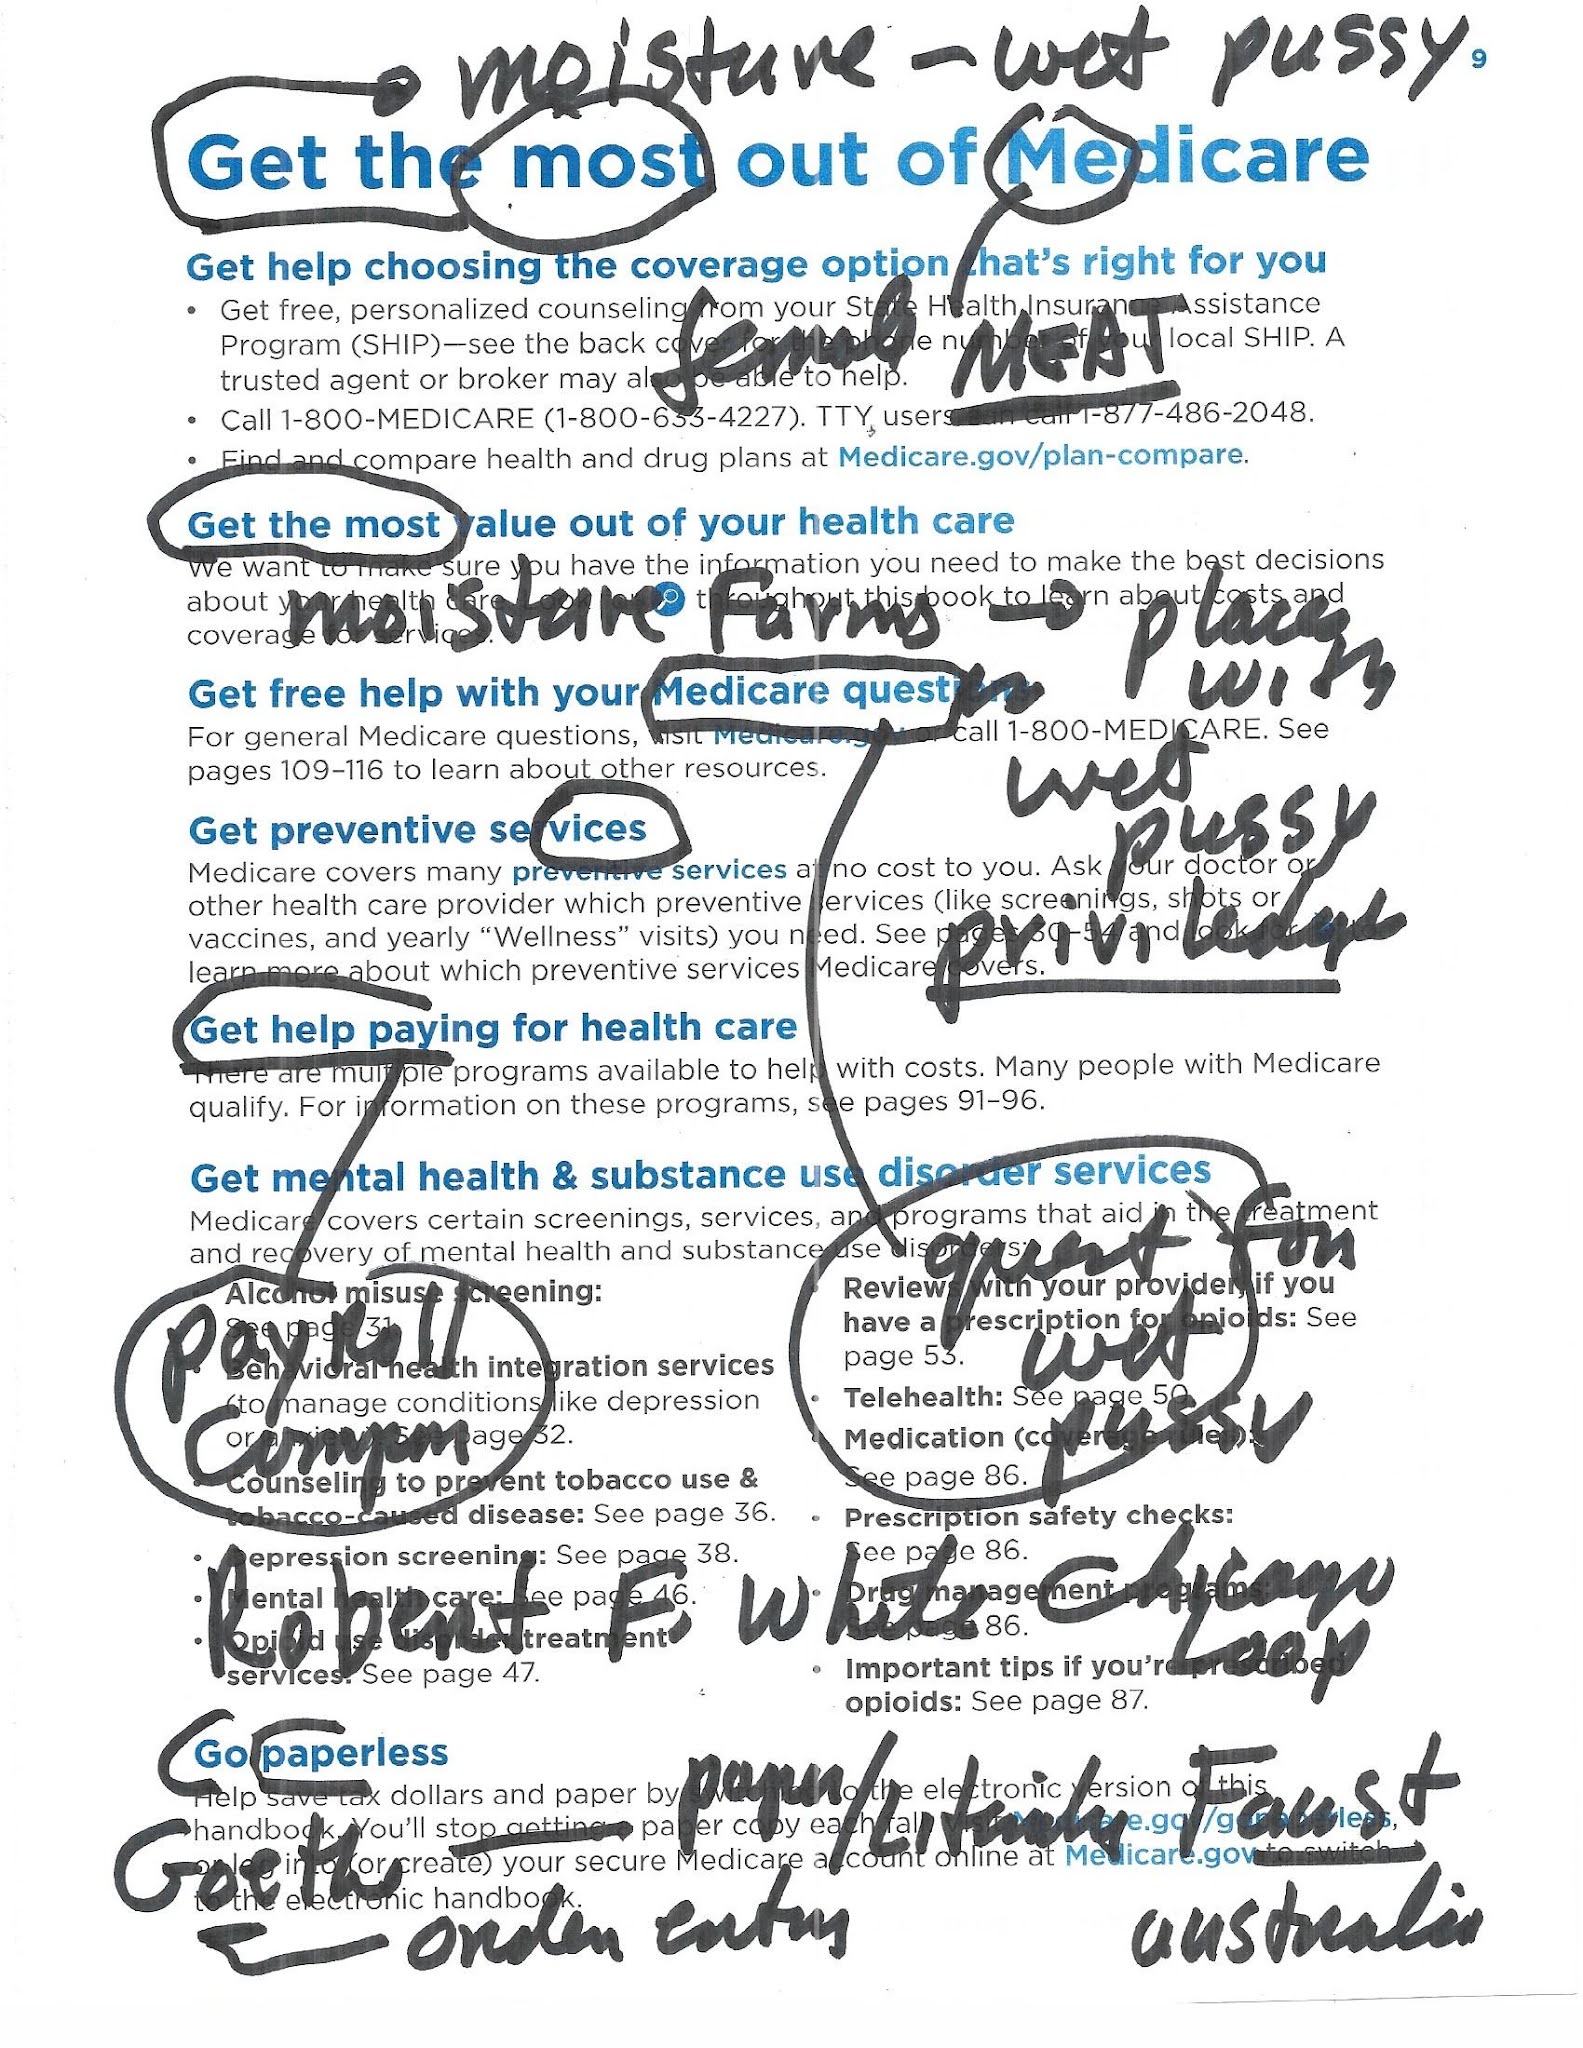 moisture – wet pussy
9
Get the most out of Medicare
Get help choosing the coverage option that's right for you
• Get free, personalized counseling from your State Health Insurance Assistance
Program (SHIP)—see the back cover for the phone number of your local SHIP. A
trusted agent or broker may also be able to help.
female MEAT
• Call 1-800-MEDICARE (1-800-633-4227). TTY users can call 1-877-486-2048.
• Find and compare health and drug plans at Medicare.gov/plan-compare.
Get the most value out of your health care
We want to make sure you have the information you need to make the best decisions
about your health care. Look for throughout this book to learn about costs and
coverage for services.
moisture Farms → places
with
wet
pussy
priviledges
Get free help with your Medicare questions
For general Medicare questions, visit Medicare.gov or call 1-800-MEDICARE. See
pages 109–116 to learn about other resources.
Get preventive services
Medicare covers many preventive services at no cost to you. Ask your doctor or
other health care provider which preventive services (like screenings, shots or
vaccines, and yearly “Wellness” visits) you need. See pages 30–54 and look for to
learn more about which preventive services Medicare covers.
Get help paying for health care
There are multiple programs available to help with costs. Many people with Medicare
qualify. For information on these programs, see pages 91–96.
Get mental health & substance use disorder services
Medicare covers certain screenings, services, and programs that aid in the treatment
and recovery of mental health and substance use disorders:
• Alcohol misuse screening:
See page 31.
• Behavioral health integration services
(to manage conditions like depression
or anxiety): See page 32.
• Counseling to prevent tobacco use &
tobacco-caused disease: See page 36.
• Depression screening: See page 38.
• Mental health care: See page 46.
• Opioid use disorder treatment
services: See page 47.
payroll
quest for
wet
pussy
• Reviews with your provider, if you
have a prescription for opioids: See
page 53.
• Telehealth: See page 50.
• Medication (coverage rules):
See page 86.
• Prescription safety checks:
See page 86.
• Drug management programs:
See page 86.
• Important tips if you're prescribed
opioids: See page 87.
Robert F. White Chicago
Loop
Go paperless
Help save tax dollars and paper by switching to the electronic version of this
handbook. You'll stop getting a paper copy each fall. Visit Medicare.gov/gopaperless,
or log into (or create) your secure Medicare account online at Medicare.gov to switch
to the electronic handbook.
Goethe paper/ Faust
order entry australia